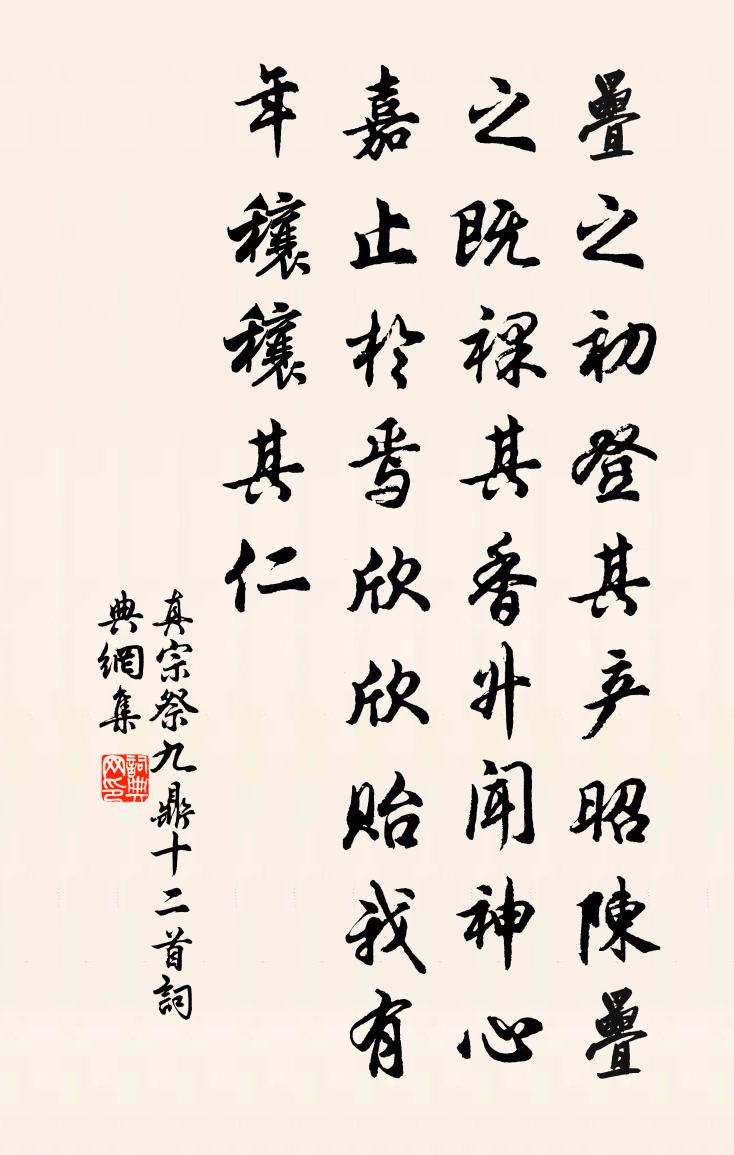 疊之初登其产昭陳疊
之既祼其香升闻神心
嘉止於焉欣欣贻我有
年穰穰其仁
真宗祭九鼎十二首詞
典網集
詞典
网印